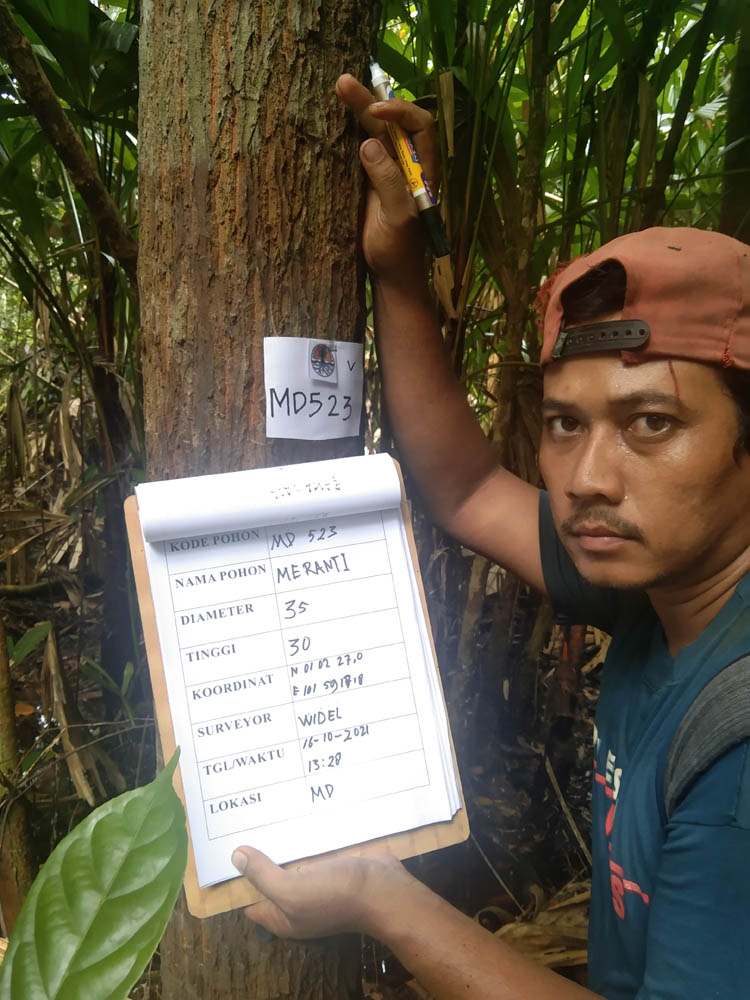 V
MD523
KODE POHON MD 523
NAMA POHON MERANTI
DIAMETER 35
TINGGI 30
KOORDINAT N 01 02 27,0
E 101 59
SURVEYOR WIDEL
TGL/WAKTU 16-10-2021
13:28
LOKASI MD